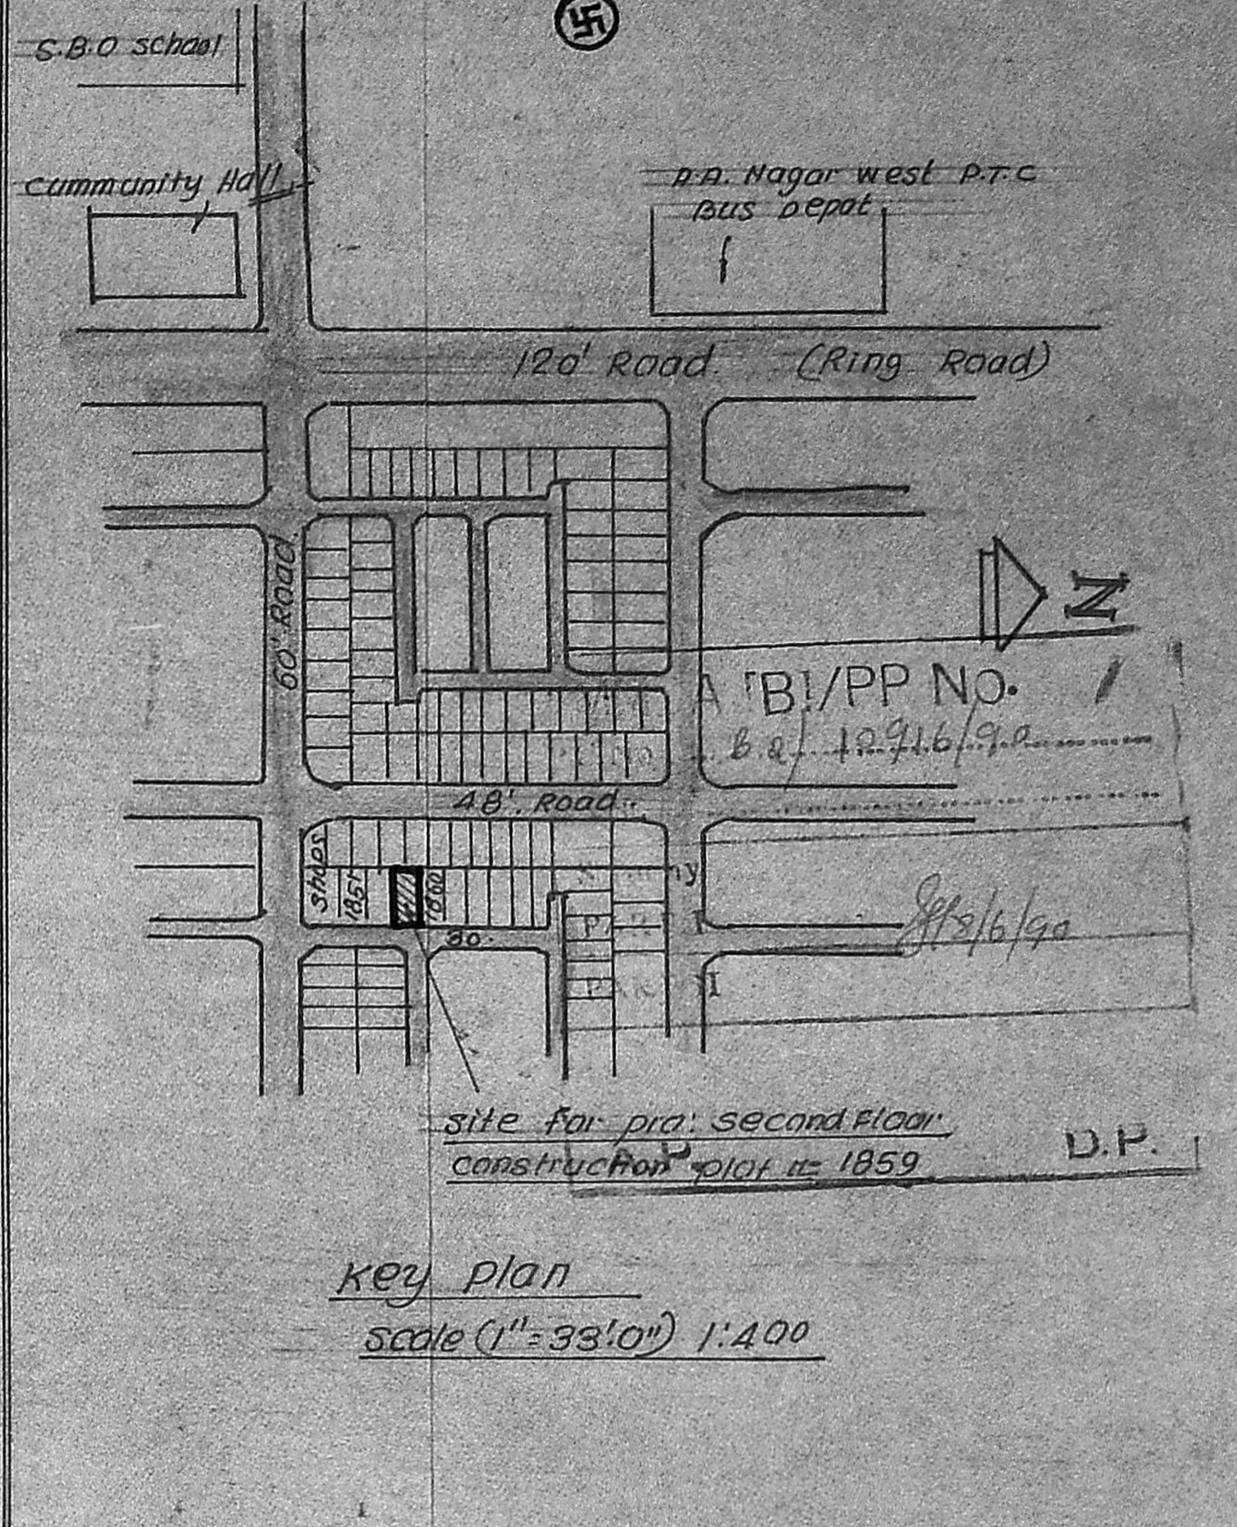 S.B.O school
Cummunity Hall
A.A. Nagar west P.T.C
Bus Depot
120' Road (Ring Road)
60' Road
N
/PP NO.
48'. Road
shops
1851
1860
30'
8/6/90
site for pro: second Floor
construction plot n= 1859
D.P.
key plan
scale (1"=33'.0") 1:400